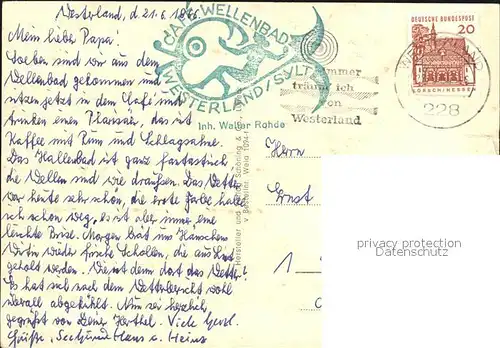 Westerland, d. 21.6.1966
Mein lieber Papa!
Soeben sind wir aus dem
Wellenbad gekommen und
sitzen jetzt in dem Café und
trinken einen Pharisäer, das ist
Kaffee mit Rum und Schlagsahne.
Das Hallenbad ist ganz fantastisch
die Wellen sind wie draußen. Das Wetter
war heute sehr schön, die erste Farbe haben
ich schon weg, es ist aber immer eine
leichte Brise. Morgen gibt uns
Wirtin wieder frische Schollen, die aus List
geholt werden. Wie ist denn dort das Wetter?
Es hat sich nach dem Wetterbericht wohl
überall abgekühlt. Nun sei herzlich
gegrüßt von Deiner Herthel. Viele herzl.
Grüße, Hans u. Heinz
CAFÉ WELLENBAD
WESTERLAND/SYLT
Inh. Walter Rohde
Immer
träum ich
von
Westerland
DEUTSCHE BUNDESPOST
20
LORSCH/HESSEN
228
Herrn
Ernst
1
privacy protection
Datenschutz